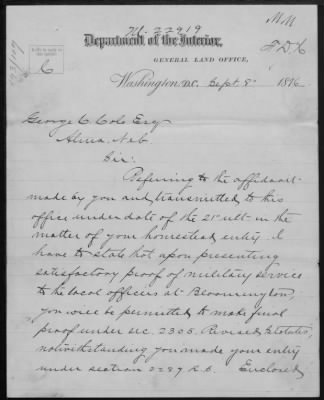 M-22919
MM
Department of the Interior,
F.D.H
GENERAL LAND OFFICE,
C
Washington, D.C. Sept. 8" 1876
George C. Cole Esq
Alma. Neb
Sir:
Referring to the affidavit
made by you and transmitted to this
office under date of the 21" ult. in the
matter of your homestead entry. I
have to state that upon presenting
satisfactory proof of military service
to the local officers at Bloomington,
you will be permitted to make final
proof under sec. 2305. Revised Statutes,
notwithstanding you made your entry
under section 2289 R.S. Enclosed